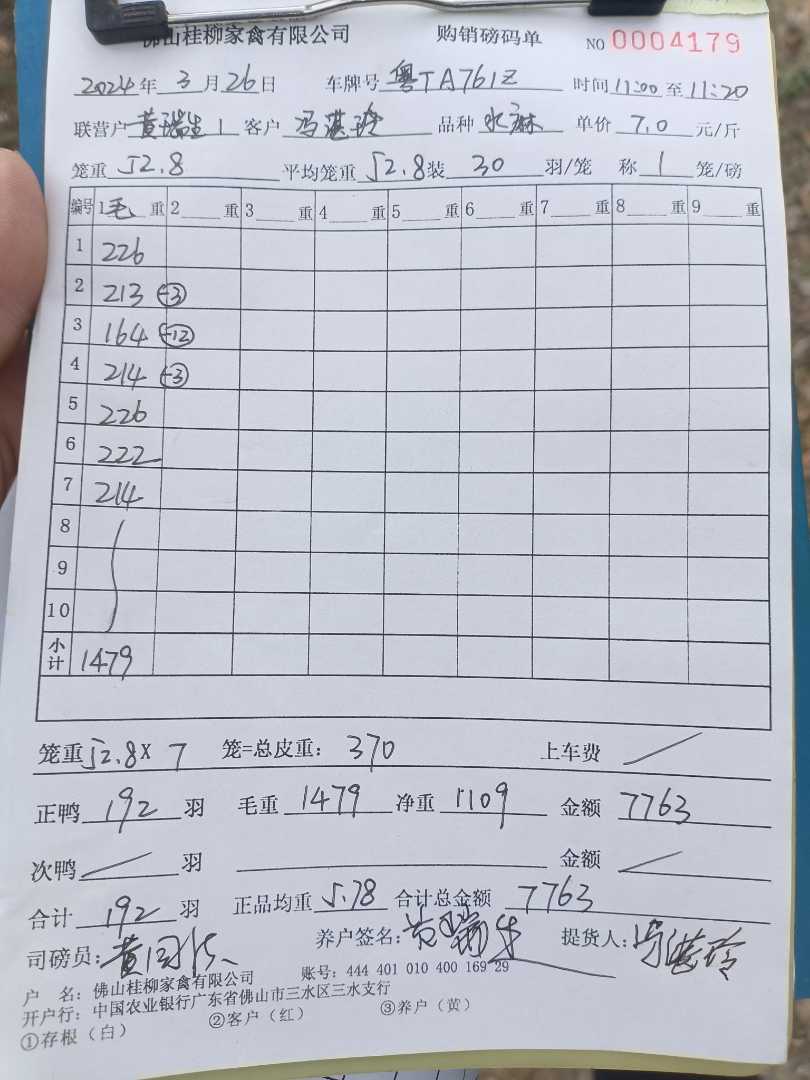 佛山桂柳家禽有限公司 购销磅码单 NO 0004179
2024年3月26日 车牌号 粤TA761Z 时间 11:00 至 11:20
联营户 黄瑞生1 客户 冯湛玲 品种 水麻 单价 7.0 元/斤
笼重 52.8 平均笼重 52.8 装 30 羽/笼 称 1 笼/磅
编号 1 毛 重 2 重 3 重 4 重 5 重 6 重 7 重 8 重 9 重
1 226
2 213 -3
3 164 -12
4 214 -3
5 226
6 222
7 214
8
9
10
小计 1479
笼重 52.8 x 7 笼=总皮重: 370 上车费
正鸭 192 羽 毛重 1479 净重 1109 金额 7763
次鸭 羽 金额
合计 192 羽 正品均重 5.78 合计总金额 7763
司磅员: 养户签名: 黄瑞生 提货人: 冯湛玲
户 名: 佛山桂柳家禽有限公司 账号: 444 401 010 400 169 29
开户行: 中国农业银行广东省佛山市三水区三水支行
①存根(白) ②客户(红) ③养户(黄)